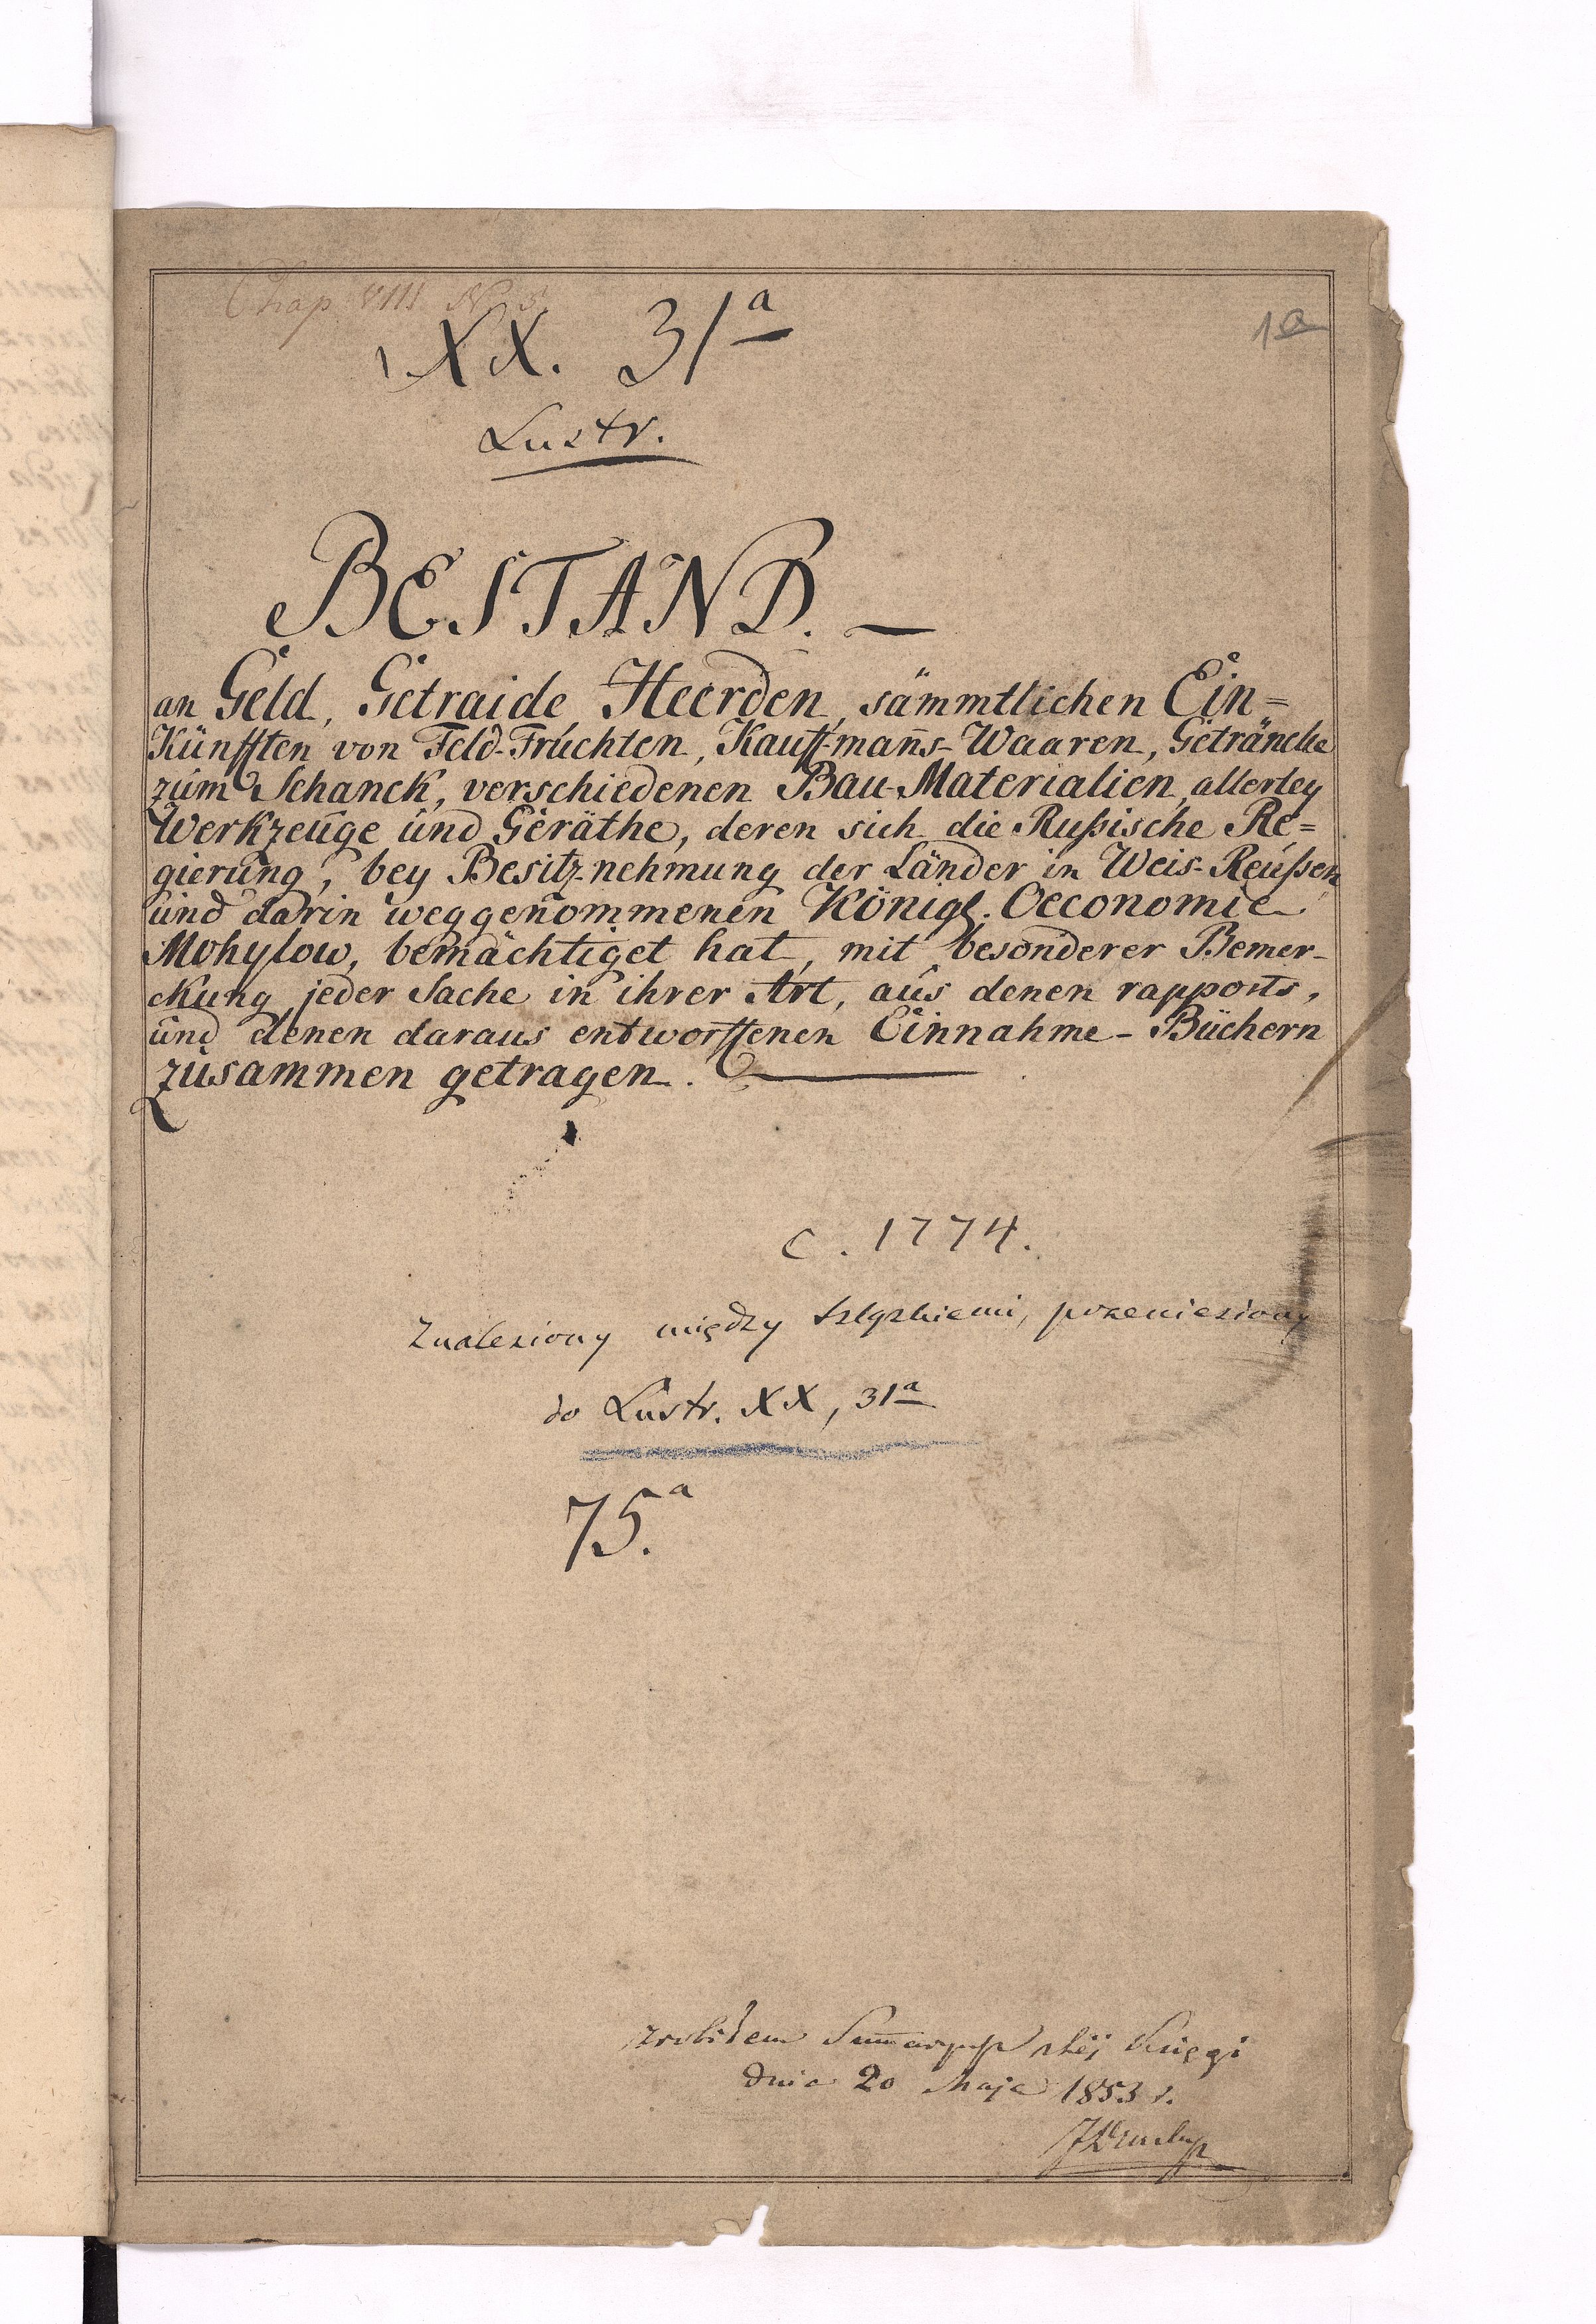 Chap VIII N 3.
XX. 31a
1a
Lustr.
BESTAND. —
an Geld, Getraide, Heerden, sämmtlichen Ein=
Künfften von Feld-Früchten, Kauff-man̄s-Waaren, Geträncke
zum Schanck, verschiedenen Bau-Materialien, allerley
Werkzeuge und Geräthe, deren sich die Rußische Re=
gierung, bey Besitz-nehmung der Länder in Weis-Reußen
und darin weggenommenen Königl. Oeconomie
Mohylow, bemächtiget hat, mit besonderer Bemer-
ckung jeder Sache in ihrer Art, aus denen rapports,
und denen daraus entworffenen Einnahme-Büchern
zusammen getragen.
c. 1774.
Znaleziony między szląskiemi, przeniesiony
do Lustr. XX, 31a
75.a
zrobiłem Sum̄aryusz téj Księgi
dnia 20 Maja 1853 r.